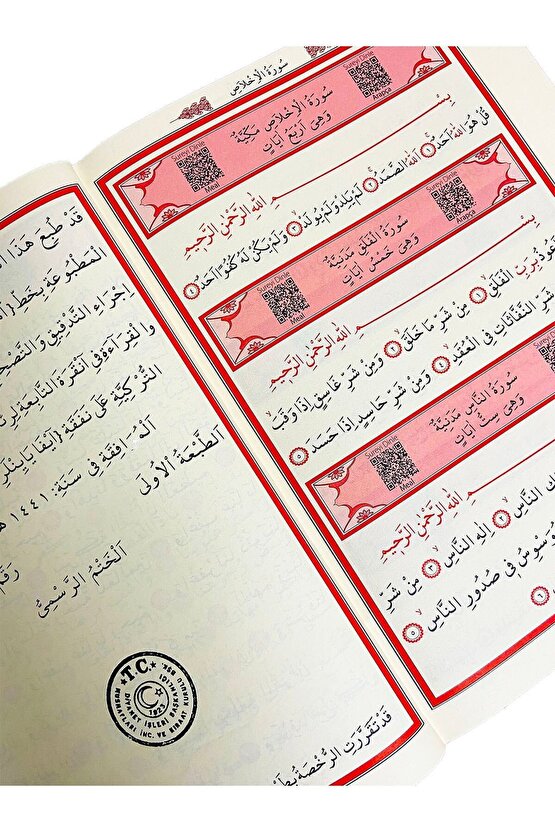 سُورَةُ الْاِخْلَاصِ
Sureyi Dinle
Arapça
سُورَةُ الْاِخْلَاصِ مَكِّيَّةٌ
وَهِيَ اَرْبَعُ اٰيَاتٍ
Sureyi Dinle
Meal
بِسْمِ اللّٰهِ الرَّحْمٰنِ الرَّحِيمِ
قُلْ هُوَ اللّٰهُ اَحَدٌ ١ اَللّٰهُ الصَّمَدُ ٢ لَمْ يَلِدْ وَلَمْ يُولَدْ ٣
وَلَمْ يَكُنْ لَهُ كُفُوًا اَحَدٌ ٤
Sureyi Dinle
Arapça
سُورَةُ الْفَلَقِ مَدَنِيَّةٌ
وَهِيَ خَمْسُ اٰيَاتٍ
Sureyi Dinle
Meal
بِسْمِ اللّٰهِ الرَّحْمٰنِ الرَّحِيمِ
بِرَبِّ الْفَلَقِ ١ مِنْ شَرِّ مَا خَلَقَ ٢ وَمِنْ شَرِّ غَاسِقٍ اِذَا وَقَبَ
شَرِّ النَّفَّاثَاتِ فِي الْعُقَدِ ٤ وَمِنْ شَرِّ حَاسِدٍ اِذَا حَسَدَ ٥
سُورَةُ النَّاسِ مَدَنِيَّةٌ
وَهِيَ سِتُّ اٰيَاتٍ
Sureyi Dinle
Meal
اللّٰهِ الرَّحْمٰنِ الرَّحِيمِ
النَّاسِ ٢ اِلٰهِ النَّاسِ ٣ مِنْ شَرِّ
فِي صُدُورِ النَّاسِ ٥
٦
قَدْ طُبِعَ هَذَا
الْمَطْبُوعَةِ بِخَطِّ
اِجْرَاءِ التَّدْقِيقِ
وَالْقِرَاءَةِ فِي اَنْقَرَةَ التَّابِعَةِ
التُّرْكِيَّةِ عَلَى نَفَقَةِ
اَلْمُوَافِقَةِ فِي سَنَةِ: ١٤٤١
اَلطَّبْعَةُ الْاُولَى
اَلْخَتْمُ الرَّسْمِيُّ
T.C.
DİYANET İŞLERİ BAŞKANLIĞI
MUSHAFLARI İNC. VE KIRAAT KURULU BŞK.
1923
قَدْ تَقَرَّرَتِ الرُّخْصَةُ